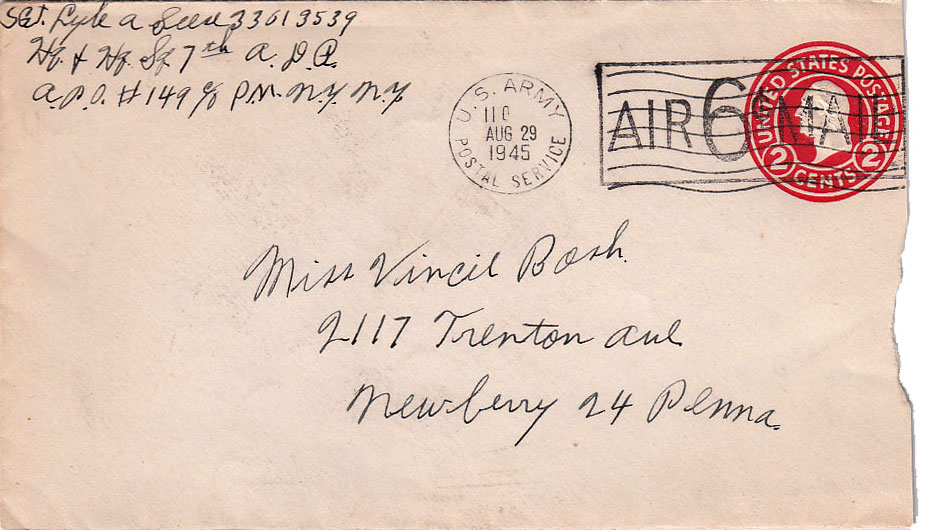 Sgt. Lyle A 33613539
Hq. & Hq. Sq 7th A.D.A.
A.P.O. # 149 c/o P.M. N.Y. N.Y.
U.S. ARMY
POSTAL SERVICE
AUG 29
1945
AIR 6¢ MAIL
UNITED STATES POSTAGE
2 CENTS 2
Miss Vincil Bosh.
2117 Trenton Ave
Newberry 24 Penna.